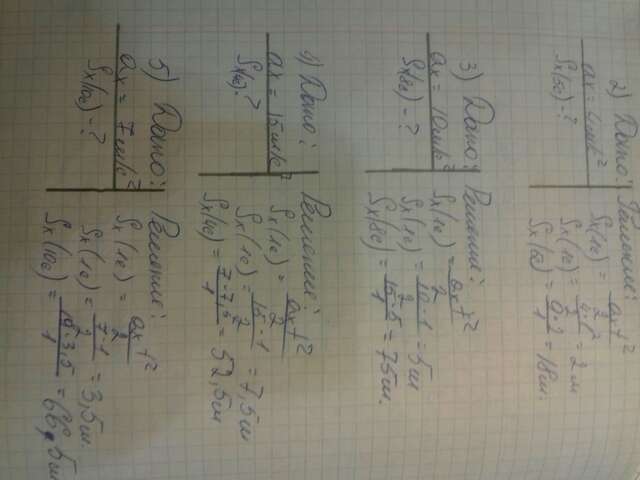 2) Дано:
ax = 4м/с²
Sx(5с)-?
Решение:
Sx(1с) = axt²/2
Sx(1с) = 4·1²/2 = 2м
Sx(5с) = 9·2/1 = 18м.
3) Дано:
ax = 10м/с²
Sx(8с) - ?
Решение:
Sx(1с) = axt²/2
Sx(1с) = 10·1/2 = 5м
Sx(8с) = 15·5/1 = 75м.
4) Дано:
ax = 15м/с²
Sx(4с)?
Решение:
Sx(1с) = axt²/2
Sx(1с) = 15·1/2 = 7,5м
Sx(4с) = 7·7,5/1 = 52,5м
5) Дано:
ax = 7м/с²
Sx(10с) - ?
Решение:
Sx(1с) = axt²/2
Sx(1с) = 7·1/2 = 3,5м.
Sx(10с) = 19·3,5/1 = 66,5м